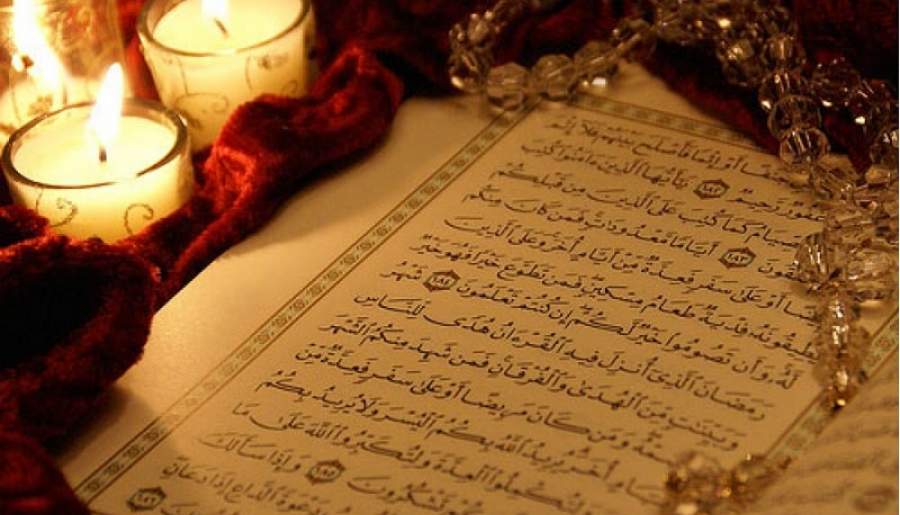 أَوْ إِثْمًا فَأَصْلَحَ بَيْنَهُمْ فَلَآ إِثْمَ
غَفُورٌ رَّحِيمٌ ١٨٢ يَٰٓأَيُّهَا ٱلَّذِينَ ءَامَنُوا۟ كُتِبَ
ٱلصِّيَامُ كَمَا كُتِبَ عَلَى ٱلَّذِينَ مِن قَبْلِكُمْ
١٨٣ أَيَّامًا مَّعْدُودَٰتٍ فَمَن كَانَ مِنكُم
أَوْ عَلَىٰ سَفَرٍ فَعِدَّةٌ مِّنْ أَيَّامٍ أُخَرَ وَعَلَى ٱلَّذِينَ
يُطِيقُونَهُۥ فِدْيَةٌ طَعَامُ مِسْكِينٍ فَمَن تَطَوَّعَ خَيْرًا فَهُوَ خَيْرٌ
لَّهُۥ وَأَن تَصُومُوا۟ خَيْرٌ لَّكُمْ إِن كُنتُمْ تَعْلَمُونَ ١٨٤ شَهْرُ
رَمَضَانَ ٱلَّذِىٓ أُنزِلَ فِيهِ ٱلْقُرْءَانُ هُدًى لِّلنَّاسِ
وَبَيِّنَٰتٍ مِّنَ ٱلْهُدَىٰ وَٱلْفُرْقَانِ فَمَن شَهِدَ مِنكُمُ ٱلشَّهْرَ
وَمَن كَانَ مَرِيضًا أَوْ عَلَىٰ سَفَرٍ فَعِدَّةٌ مِّنْ
أُخَرَ يُرِيدُ ٱللَّهُ بِكُمُ ٱلْيُسْرَ وَلَا يُرِيدُ بِكُمُ
وَلِتُكْمِلُوا۟ ٱلْعِدَّةَ وَلِتُكَبِّرُوا۟ ٱللَّهَ عَلَىٰ مَا
تَشْكُرُونَ ١٨٥ وَإِذَا سَأَلَكَ
دَعْوَةَ ٱلدَّاعِ إِذَا دَعَانِ
١٨٦